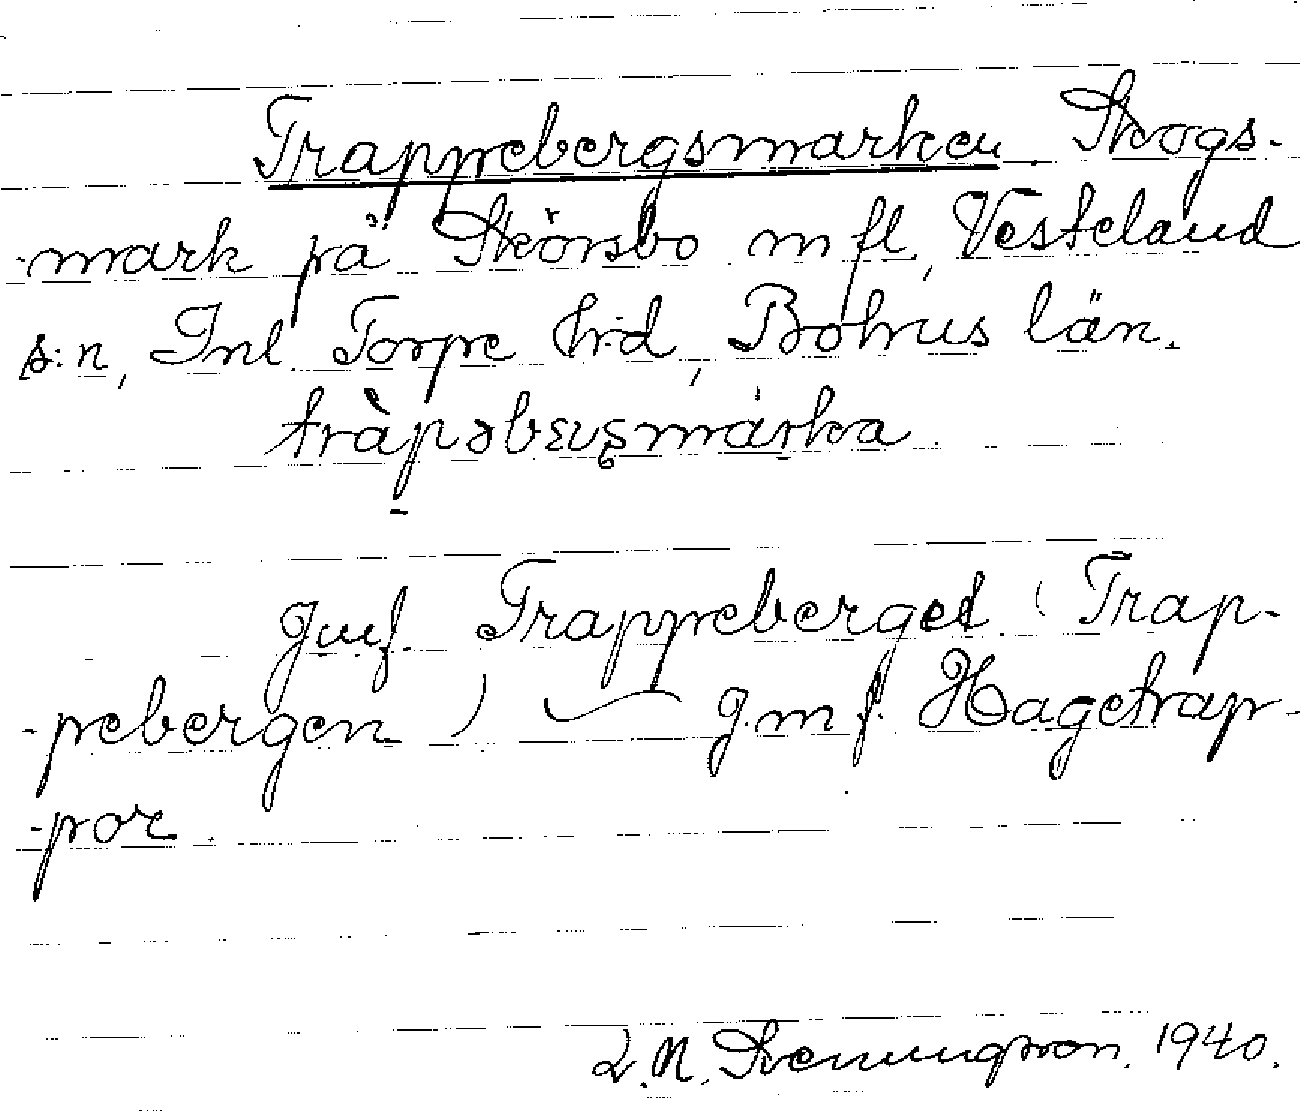 Trappebergsmarken. Skogs-
-mark på Skörsbo m fl, Vesteland
s:n, Inl. Torpe h:d, Bohus län.
tràpəbɛrsmárka.
Jmf. Trappeberget (Trap-
-pebergen) g.m.f. Hagetrap-
-por.
1940.